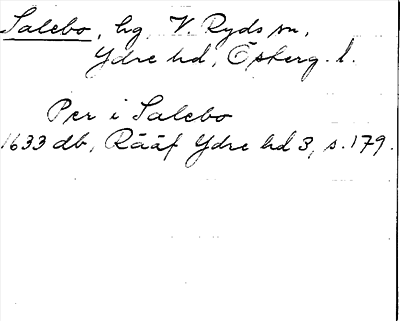 Salebo, hg, V. Ryds sn,
Ydre hd, Österg. l.
Per i Salebo
1633 db, Rääf Ydre hd 3, s. 179.